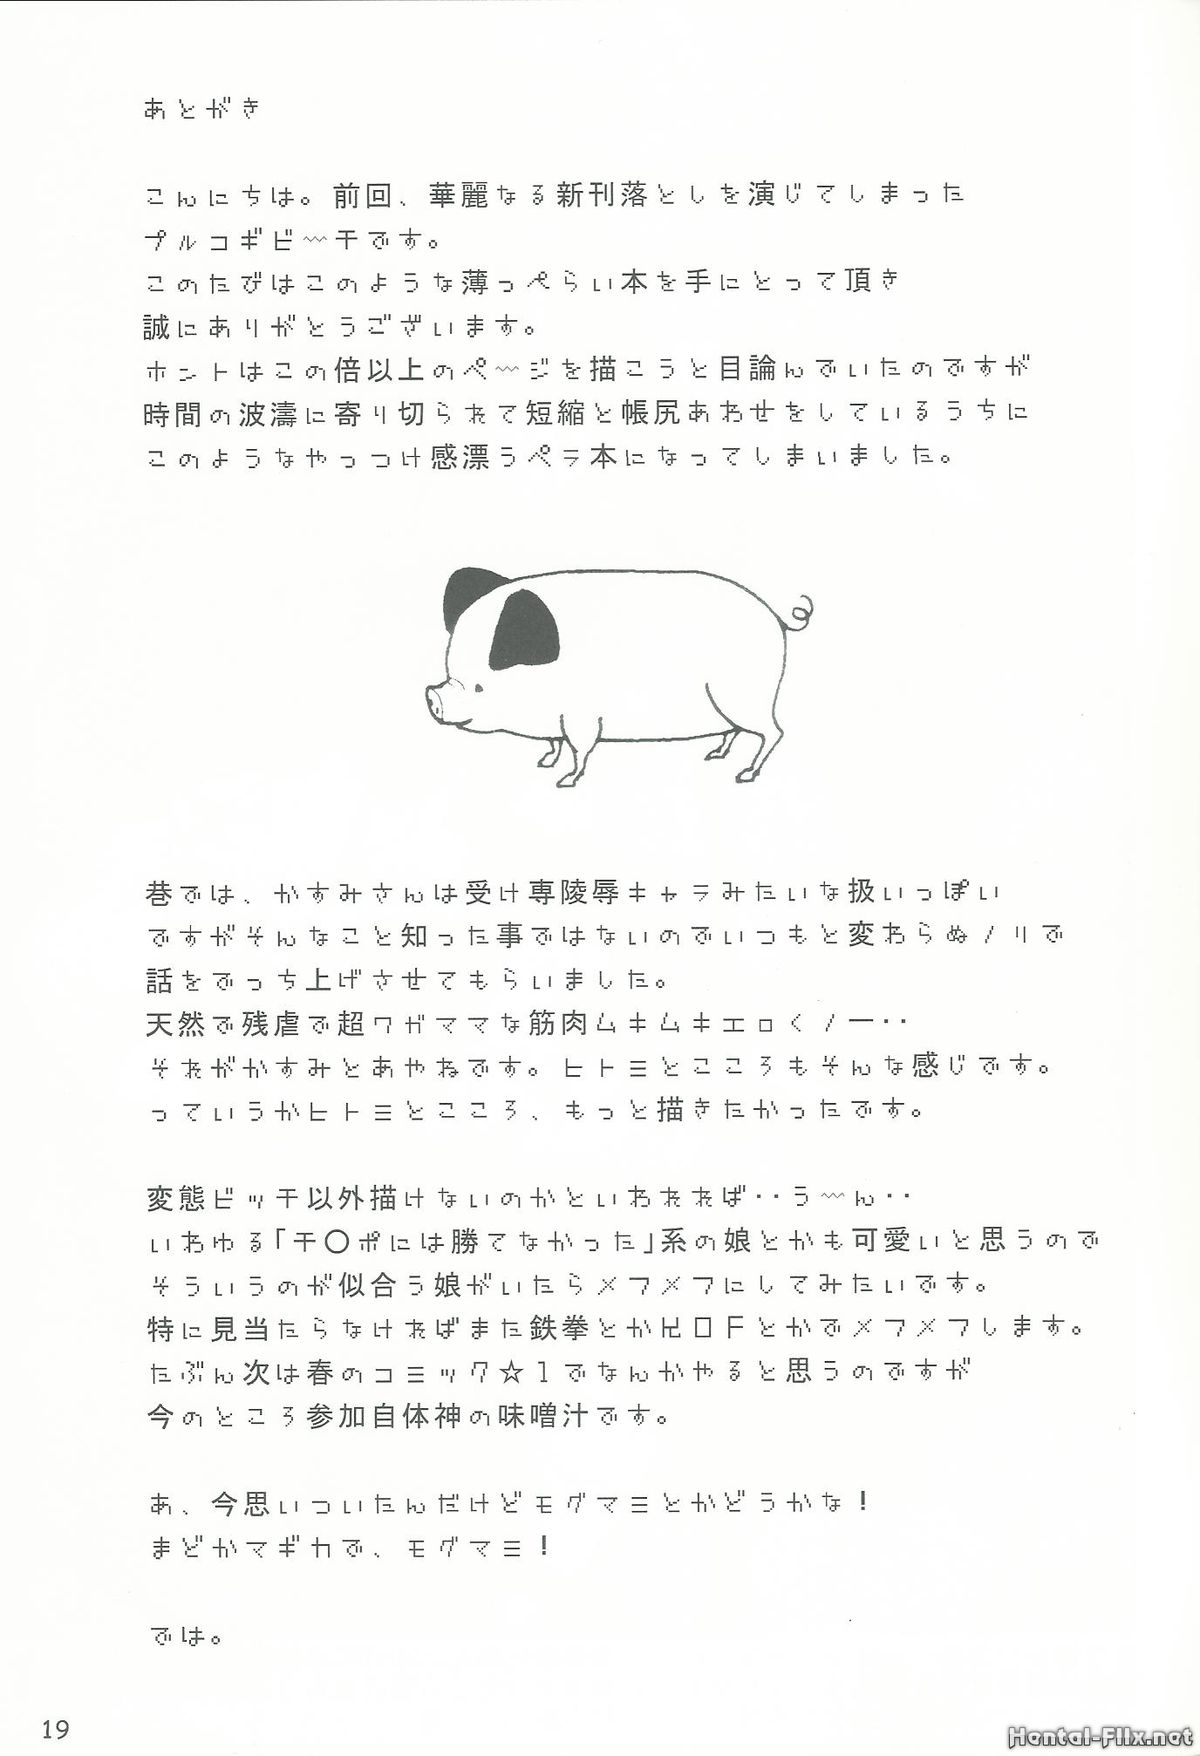 あとがき
こんにちは。前回、華麗なる新刊落としを演じてしまった
プルコギビ〰チです。
このたびはこのような薄っぺらい本を手にとって頂き
誠にありがとうございます。
ホントはこの倍以上のペ〰ジを描こうと目論んでいたのですが
時間の波濤に寄り切られて短縮と帳尻あわせをしているうちに
このようなやっつけ感漂うペラ本になってしまいました。
巷では、かすみさんは受け専陵辱キャラみたいな扱いっぽい
ですがそんなこと知った事ではないのでいつもと変わらぬノリで
話をでっち上げさせてもらいました。
天然で残虐で超ワガママな筋肉ムキムキエロくノ一‥
それがかすみとあやねです。ヒトミとこころもそんな感じです。
っていうかヒトミとこころ、もっと描きたかったです。
変態ビッチ以外描けないのかといわれれば‥う〰ん‥
いわゆる「チ〇ポには勝てなかった」系の娘とかも可愛いと思うので
そういうのが似合う娘がいたらメフメフにしてみたいです。
特に見当たらなければまた鉄拳とかKOFとかでメフメフします。
たぶん次は春のコミック☆1でなんかやると思うのですが
今のところ参加自体神の味噌汁です。
あ、今思いついたんだけどモグマミとかどうかな！
まどかマギカで、モグマミ！
では。
19
Hentai-FIIx.net